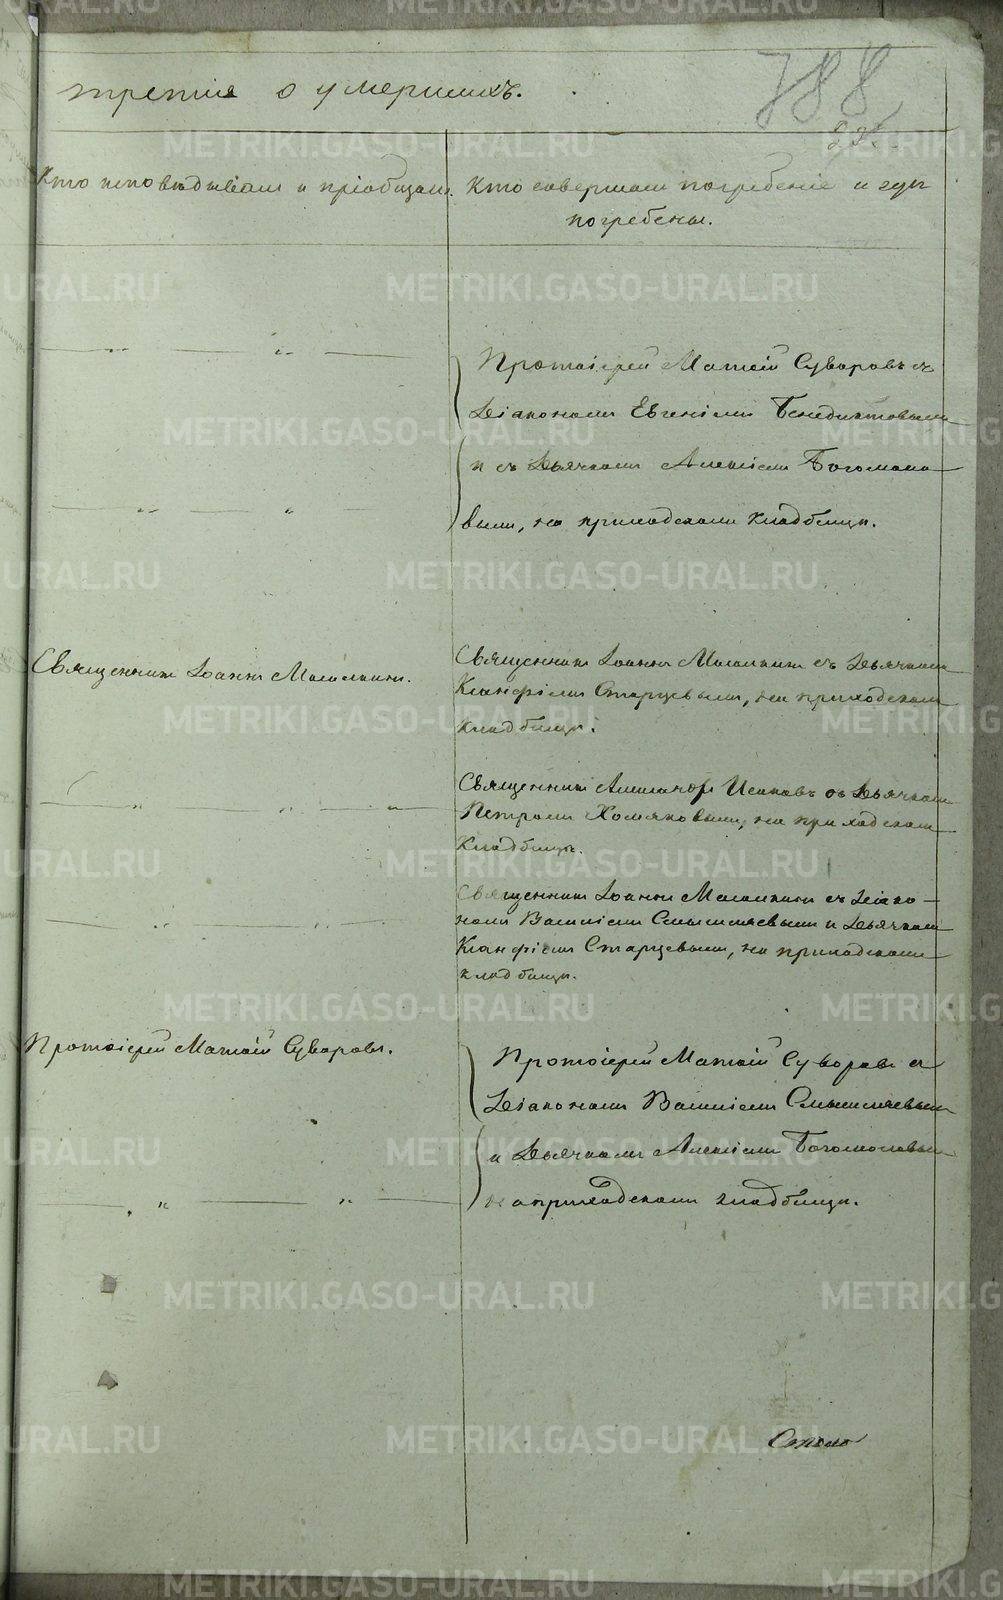 третія о умершихъ.
788
Кто исповѣдывалъ и пріобщалъ.
Кто совершалъ погребеніе и гдѣ
погребены.
Протоіерей Матѳій Суворовъ съ
Діакономъ Евгеніемъ Бенедиктовымъ
и съ Дьячкомъ Алексіемъ Богомоло
вымъ, на приходскомъ кладбищѣ.
Священник Іоаннъ
Священник Іоаннъ съ Дьячкомъ
Старцевымъ, на приходскомъ
кладбищѣ.
Священник Александръ Исаковъ съ Дьячкомъ
Петромъ Хомяковымъ, на приходскомъ
кладбищѣ.
Священник Іоаннъ съ Діако
номъ Василіемъ Смышляевымъ и Дьячкомъ
Старцевымъ, на приходскомъ
кладбищѣ.
Протоіерей Матѳій Суворовъ.
Протоіерей Матѳій Суворовъ съ
Діакономъ Василіемъ Смышляевымъ
и Дьячкомъ Алексіемъ Богомоловымъ
на приходскомъ кладбищѣ.
METRIKI.GASO-URAL.RU